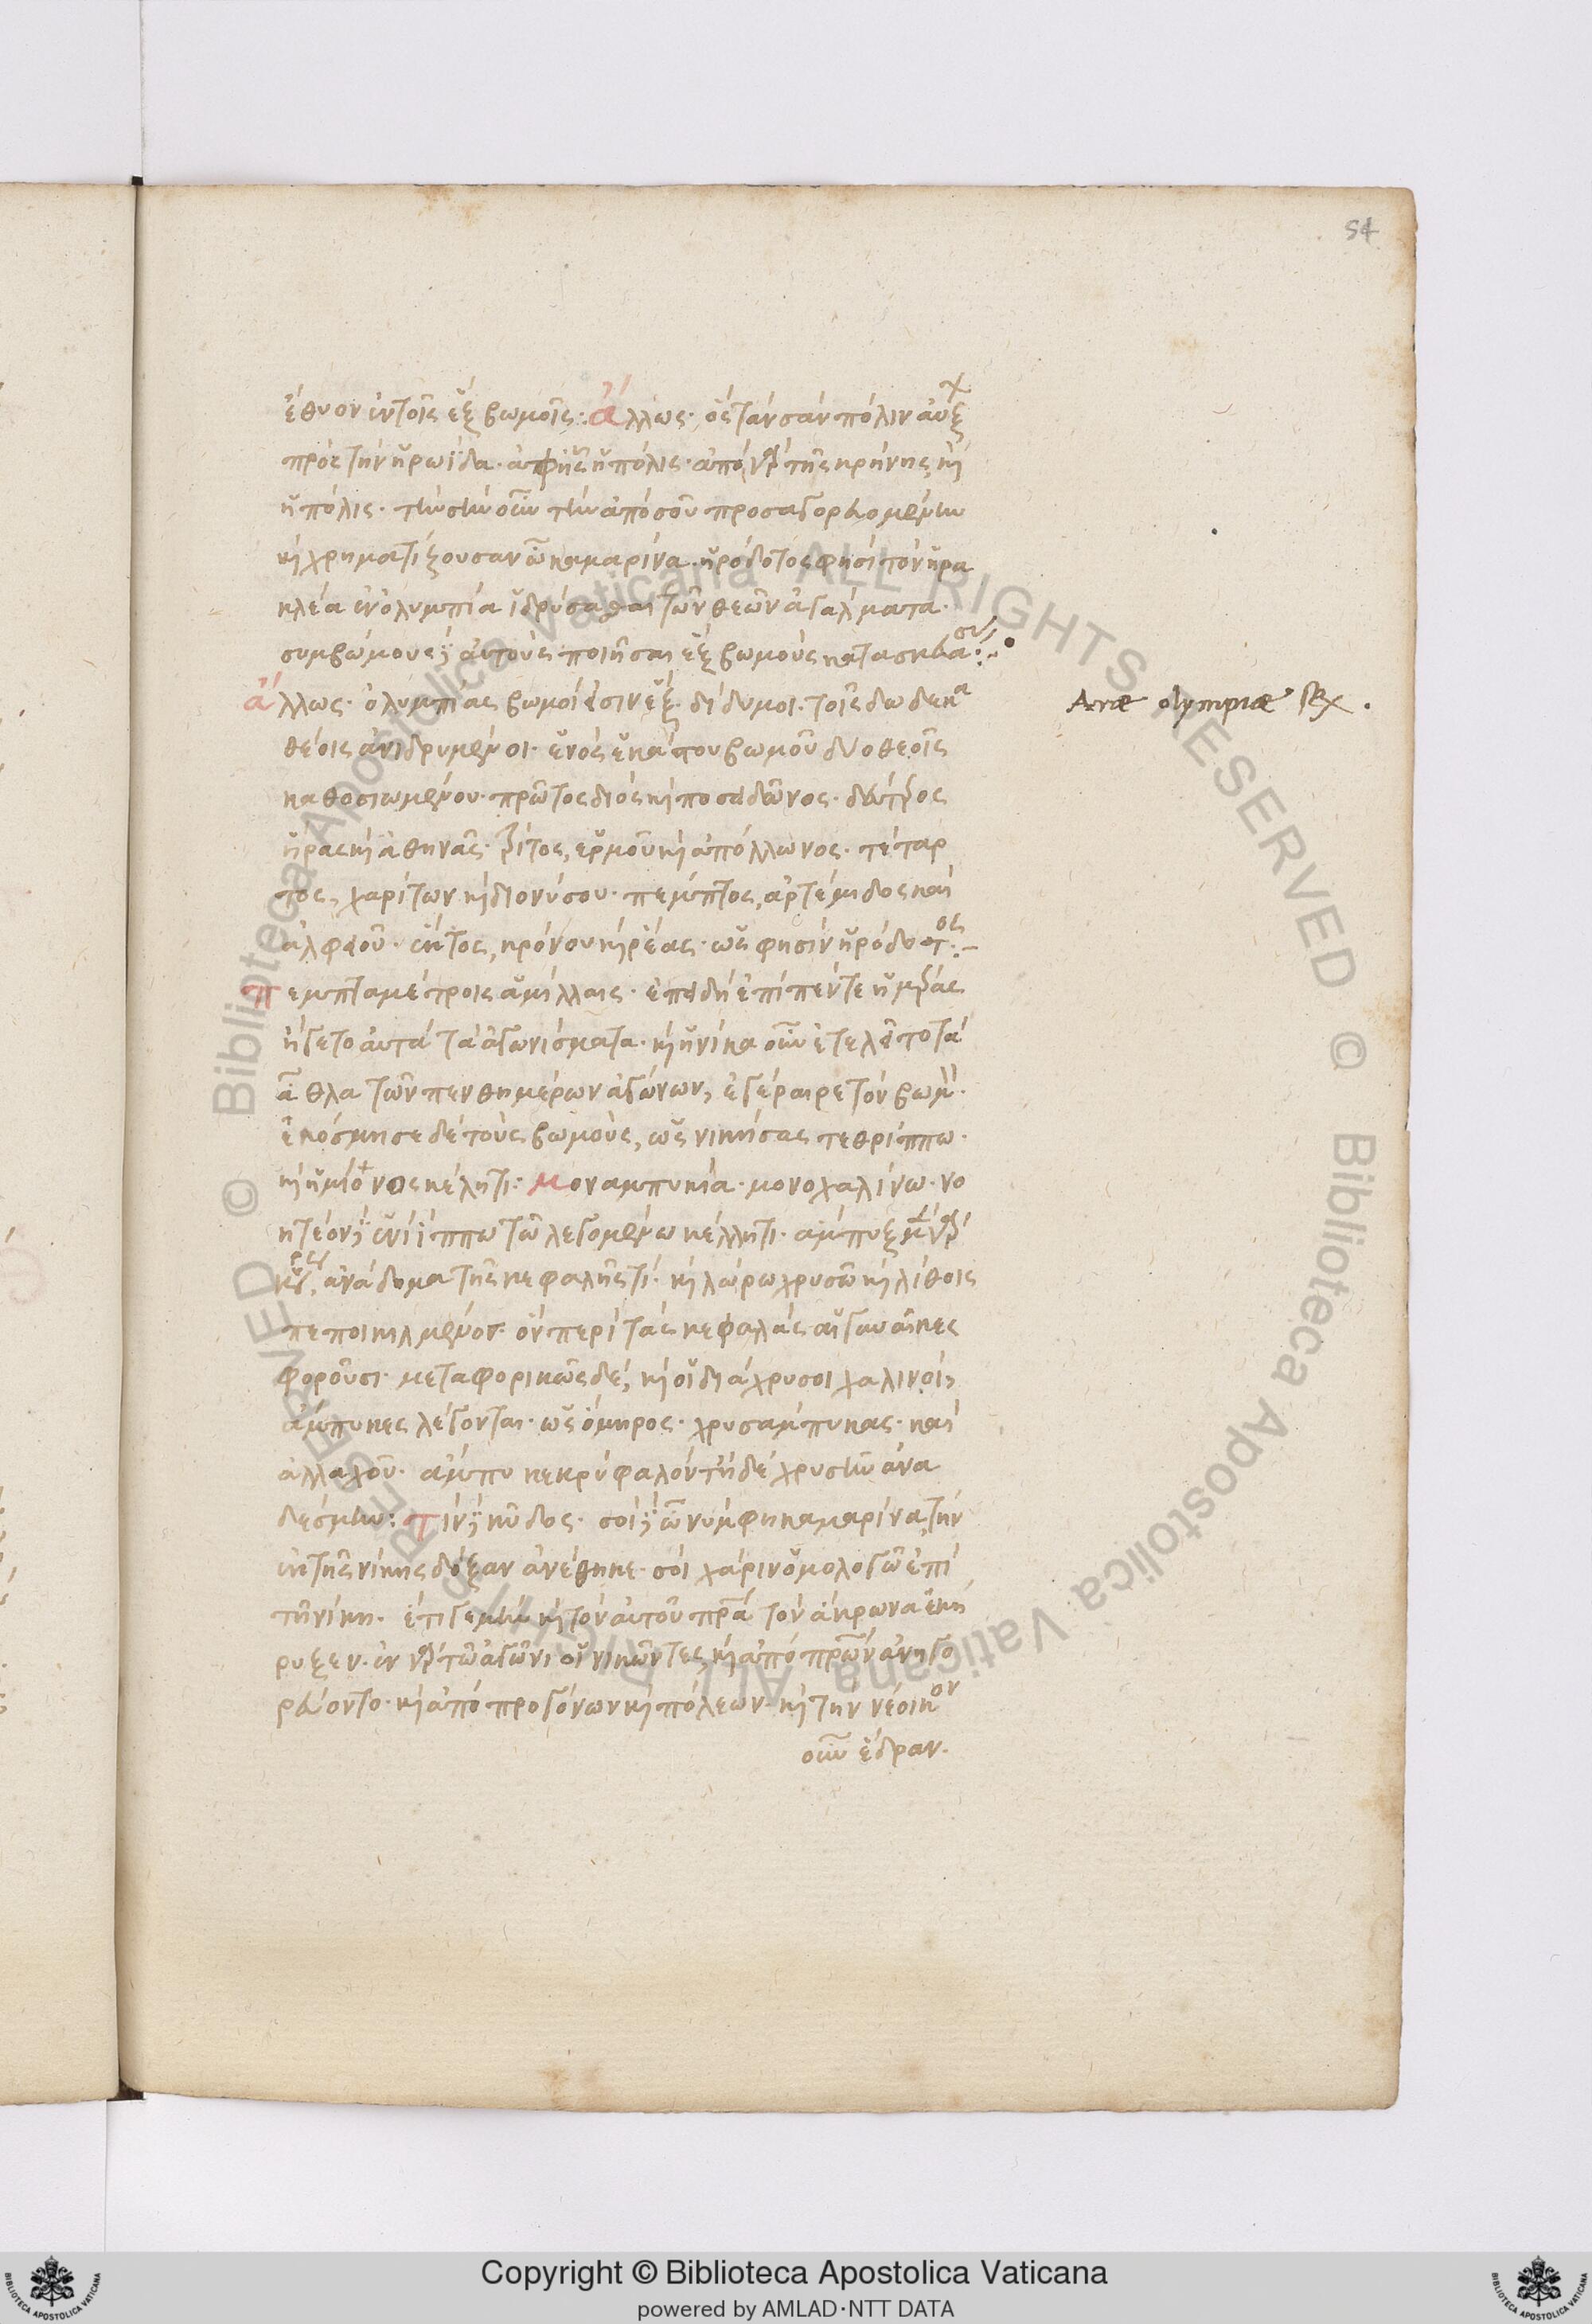 54
ἔθυον ἐν τοῖς ἓξ βωμοῖς· ἄλλως· ὃς τὰν σὰν πόλιν αὔξ
πρὸς τὴν ἡρωΐδα· ἀφ ἧς ἡ πόλις· ἀπὸ γὰρ τῆς κρήνης καὶ
ἡ πόλις· τὴν σὴν οὖν τὴν ἀπὸ σοῦ προσαγορευομένην
καὶ χρηματίζουσαν ὦ καμαρίνα· ἡρόδοτος φησὶ τὸν ἡρα
κλέα ἐν ὀλυμπία ἱδρύσασθαι τῶν θεῶν ἀγάλματα·
συμβώμους αὐτοὺς ποιῆσαι ἓξ βωμοὺς κατασκευα
ἄλλως· ὀλυμπίας βωμοί εἰσιν ἕξ· δίδυμοι· τοῖς δωδεκα
Aræ olympiæ sex.
θεοῖς ἀνιδρυμένοι· ἑνὸς ἑκάστου βωμοῦ δυο θεοῖς
καθοσιωμένου· πρῶτος διὸς καὶ ποσειδῶνος· δεύτερος
ἥρας καὶ ἀθηνᾶς· τρίτος, ἑρμοῦ καὶ ἀπόλλωνος· τέταρ
τος, χαρίτων καὶ διονύσου· πέμπτος, ἀρτέμιδος καὶ
ἀλφειοῦ· ἕκτος, κρόνου καὶ ῥέας· ὥς φησιν ἡρόδοτος:–
πεμπταμέτροις ἁμίλλαις· ἐπειδὴ ἐπὶ πέντε ἡμέρας
ἤγετο αὐτὰ τὰ ἀγωνίσματα· καὶ ἡνίκα οὖν ἐτελεῖτο τὰ
ἆθλα τῶν πενθημέρων ἀγώνων, ἐγέραιρε τὸν βωμ·
ἐκόσμησε δὲ τοὺς βωμοὺς, ὡς νικήσας τεθρίππω·
καὶ ἡμιόνοις κέλητι: μοναμπυκία· μονοχαλίνω· νο
ητέον ἑνὶ ἵππω τῶ λεγομένω κέλλητι· ἄμπυξ μὲν γὰρ
κυρίως, ἀνάδομα τῆς κεφαλῆς τί· καὶ λώρω χρυσῶ καὶ λίθοις
πεποικιλμένον· ὃν περὶ τὰς κεφαλὰς αἱ γυναῖκες
φοροῦσι· μεταφορικῶς δὲ, καὶ οἱ διάχρυσοι χαλινοὶ,
ἄμπυκες λέγονται· ὡς ὅμηρος· χρυσάμπυκας· καὶ
ἀλλαχοῦ· ἄμπυ κεκρύφαλόν τ' ἠδὲ χρυσῆν ἀνα
δέσμην: τὶν κῦδος· σοὶ ὦ νύμφη καμαρίνα, τὴν
ἐκ τῆς νίκης δόξαν ἀνέθηκε· σοὶ χάριν ὁμολογῶ ἐπὶ
τῆ νίκη· ἔτι γε μὴν καὶ τὸν αὐτοῦ πρα τὸν ἄκρωνα ἐκή
ρυξεν· ἐν γὰρ τῶ ἀγῶνι οἱ νικῶντες, καὶ ἀπὸ πρων ἀνηγο
ρεύοντο· καὶ ἀπὸ προγόνων καὶ πόλεων· καὶ τὴν νέοικον
οὖν ἕδραν.
Copyright © Biblioteca Apostolica Vaticana
powered by AMLAD·NTT DATA